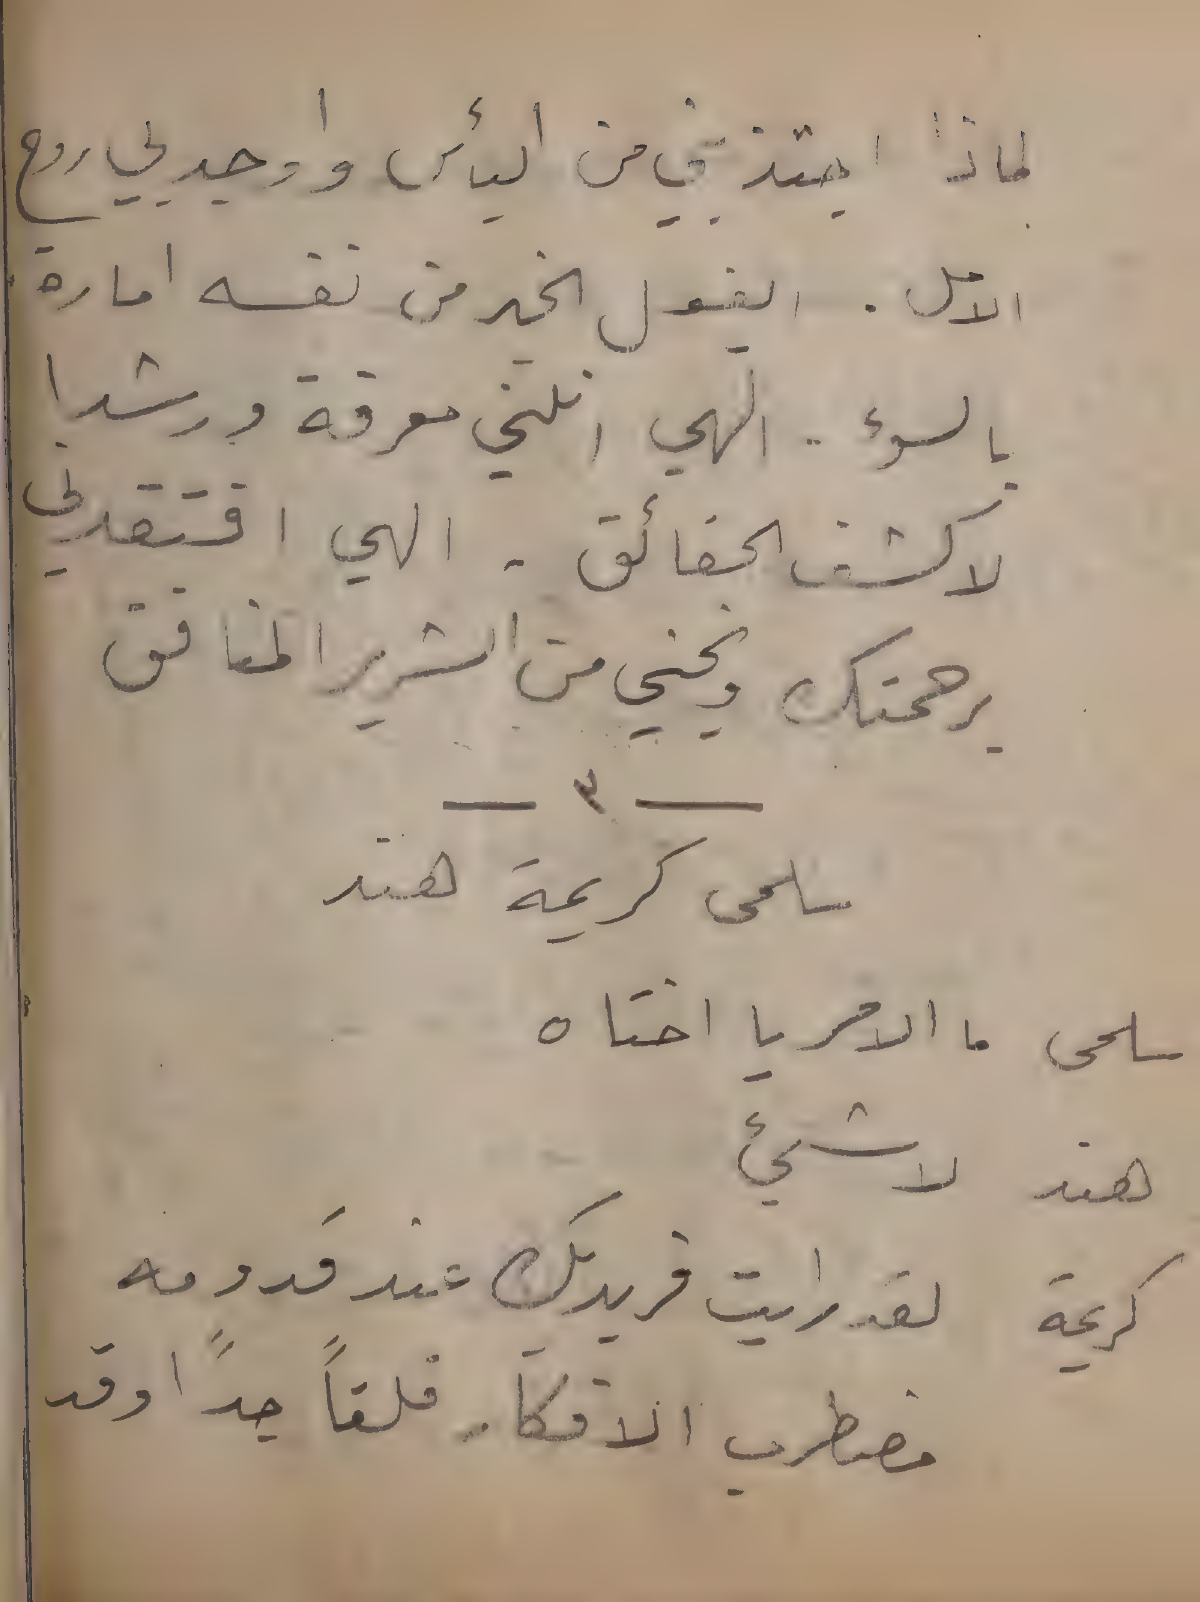 لماذا اجتذبني من اليأس واوجد لي روح
الامل . ايفعل الخير من نفسه امارة
بالسوء .. الهي انلني معرفة ورشدا
لاكشف الحقائق . الهي افتقدني
برحمتك ونجني من الشرير المنافق
— ٣ —
سلمى كريمة هند
سلمى ما الامر يا اختاه
هند لا شيئ
كريمة لقد رايت فريدك عند قدومه
مضطرب الافكار قلقاً جداً وقد